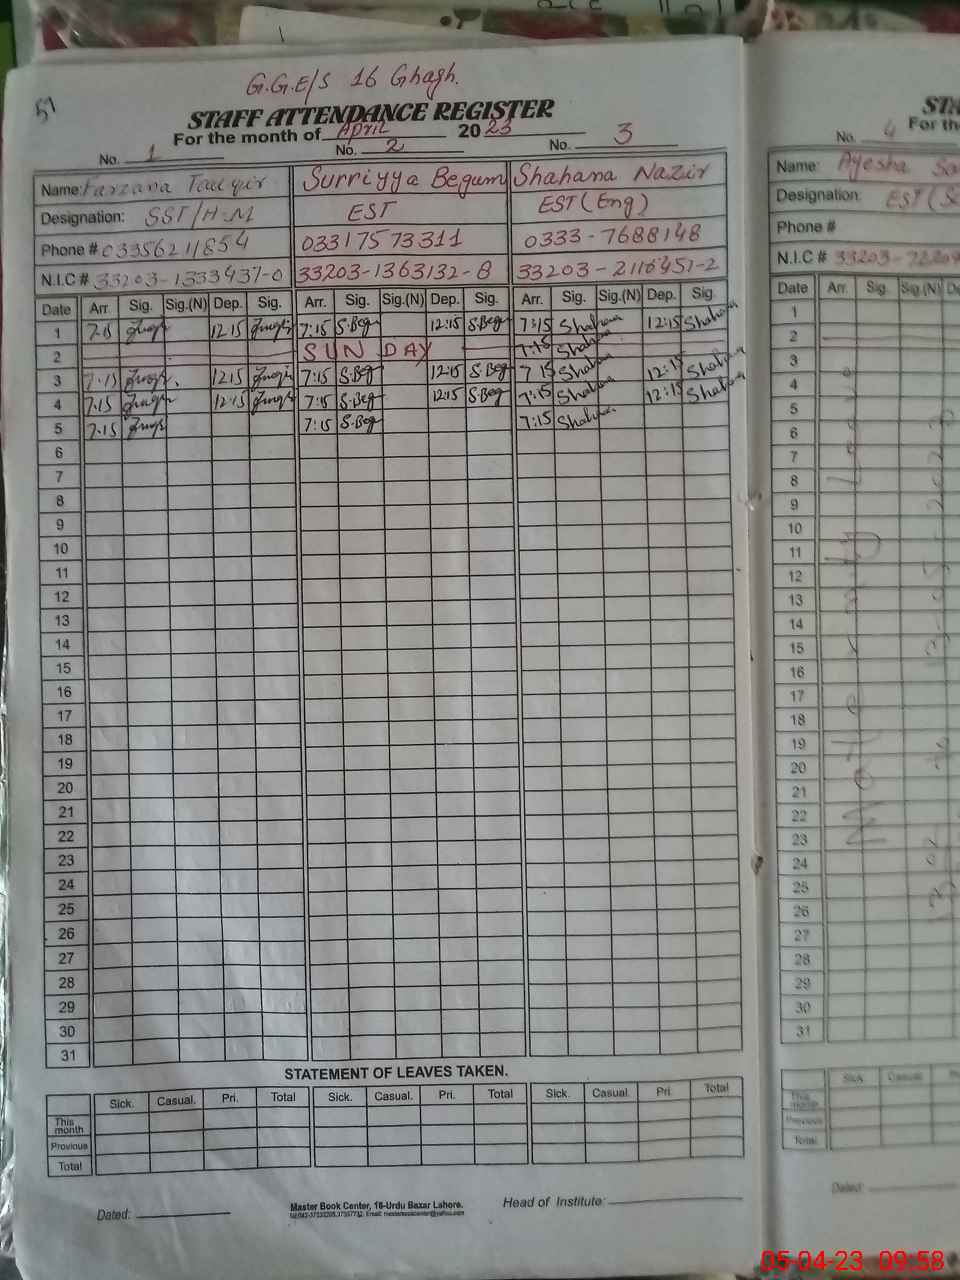 51
G.G.E/S 16 Ghagh.
STAFF ATTENDANCE REGISTER
For the month of April 2023
No. 1 No. 2 No. 3
Name: Farzana Tauqir Surriyya Begum Shahana Nazir
Designation: SST/H.M EST EST (Eng)
Phone # 03356211854 03317573311 0333-7688148
N.I.C # 33203-1333437-0 33203-1363132-8 33203-2116451-2
Date Arr. Sig. Sig.(N) Dep. Sig. Arr. Sig. Sig.(N) Dep. Sig. Arr. Sig. Sig.(N) Dep. Sig.
1 7.15 12:15 7:15 S.Beg 12:15 S.Beg 7:15 Shahana 12:15 Shahana
2 SUNDAY 7:15 Shahana
3 7.15 12:15 7:15 S.Beg 12:15 S.Beg 7 15 Shahana 12:15 Shahana
4 7.15 12:15 7:15 S.Beg 12:15 S.Beg 7:15 Shahana 12:15 Shahana
5 7.15 7:15 S.Beg 7:15 Shahana
6
7
8
9
10
11
12
13
14
15
16
17
18
19
20
21
22
23
24
25
26
27
28
29
30
31
STATEMENT OF LEAVES TAKEN.
Sick. Casual. Pri. Total Sick. Casual. Pri. Total Sick. Casual. Pri. Total
This month
Previous
Total
Dated:
Master Book Center, 16-Urdu Bazar Lahore.
Head of Institute:
STA
No. 4 For th
Name: Ayesha
Designation: EST
Phone #
N.I.C # 33203-
Date Arr. Sig. Sig.(N)
1
2
3
4
5
6
7
8
9
10
11
12
13
14
15
16
17
18
19
20
21
22
23
24
25
26
27
28
29
30
31
Sick. Casual
This month
Previous
Total
Dated:
05-04-23 09:58